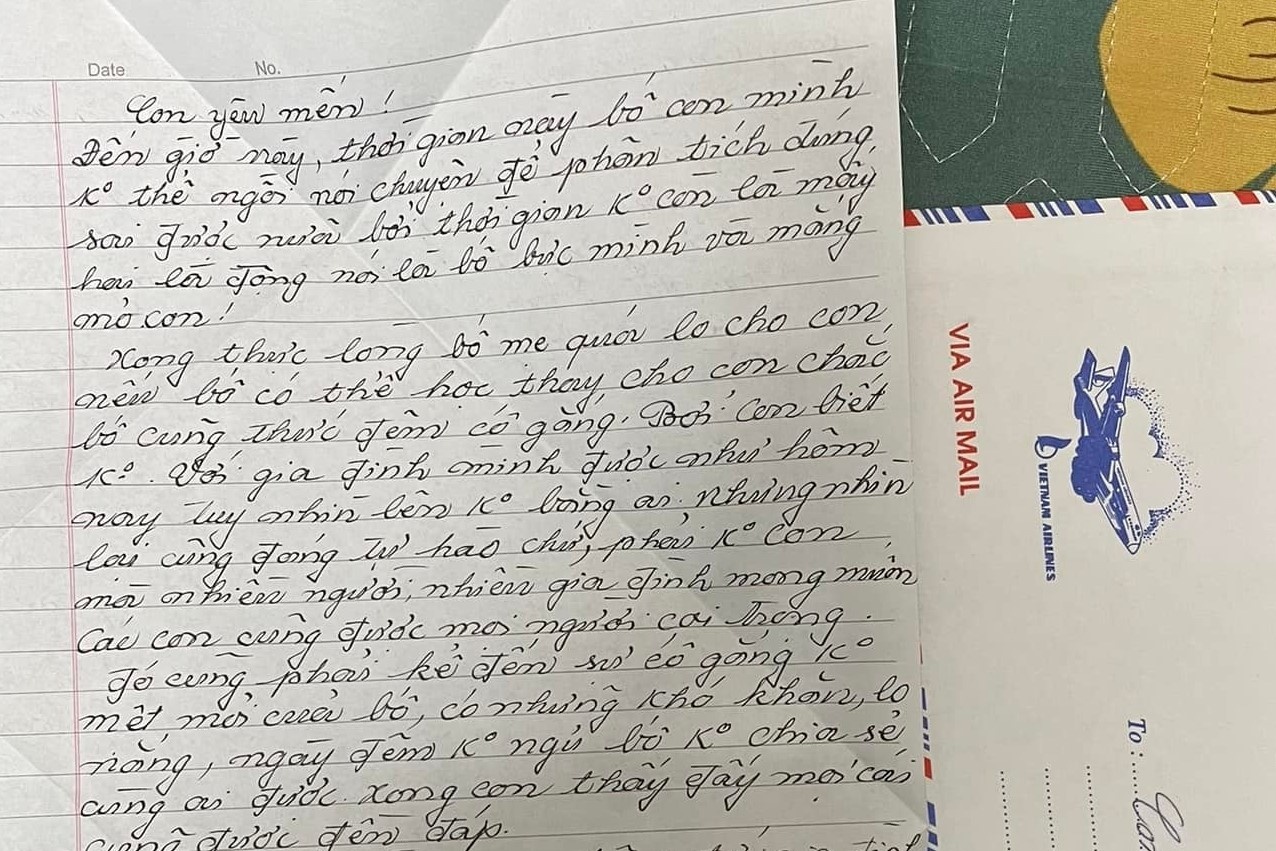 Date No.
Con yêu mến!
Đến giờ này, thời gian này bố con mình
K° thể ngồi nói chuyện để phân tích đúng,
sai được nữa bởi thời gian K° còn là mấy
hai là động nói là bố bực mình và mắng
mỏ con!
Xong thực lòng bố mẹ quá lo cho con
nếu bố có thể học thay cho con chắc
bố cũng thức đêm cố gắng. Bởi con biết
K°. Với gia đình mình được như hôm
nay tuy nhìn lên K° bằng ai nhưng nhìn
lại cũng đáng tự hào chứ, phải K° con
mà nhiều người, nhiều gia đình mong muốn
Các con cũng được mọi người coi trọng.
đó cũng phải kể đến sự cố gắng K°
mệt mỏi của bố, có những khó khăn, lo
nắng, ngày đêm K° ngủ bố K° chia sẻ
cùng ai được. xong con thấy đấy mọi cái
cũng được đền đáp.
VIA AIR MAIL
VIETNAM AIRLINES
To: Con